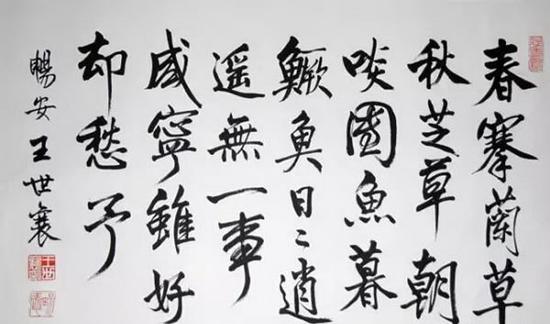 春搴蘭草
秋芝草朝
啖團魚暮
鱖魚日〻逍
遥無一事
咸寧雖好
却愁予
暢安王世襄